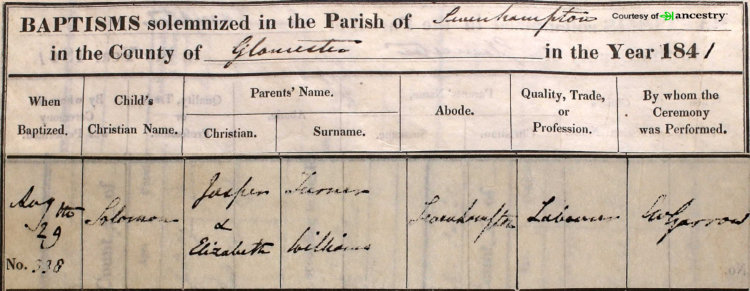 BAPTISMS solemnized in the Parish of Sevenhampton
Courtesy of ancestry
in the County of Gloucester in the Year 1841
When Baptized.
Child's Christian Name.
Parents' Name.
Christian.
Surname.
Abode.
Quality, Trade, or Profession.
By whom the Ceremony was Performed.
Augth
29
No. 338
Solomon
Jasper
&
Elizabeth
Turner
Williams
Sevenhampton
Labourer
Garrow